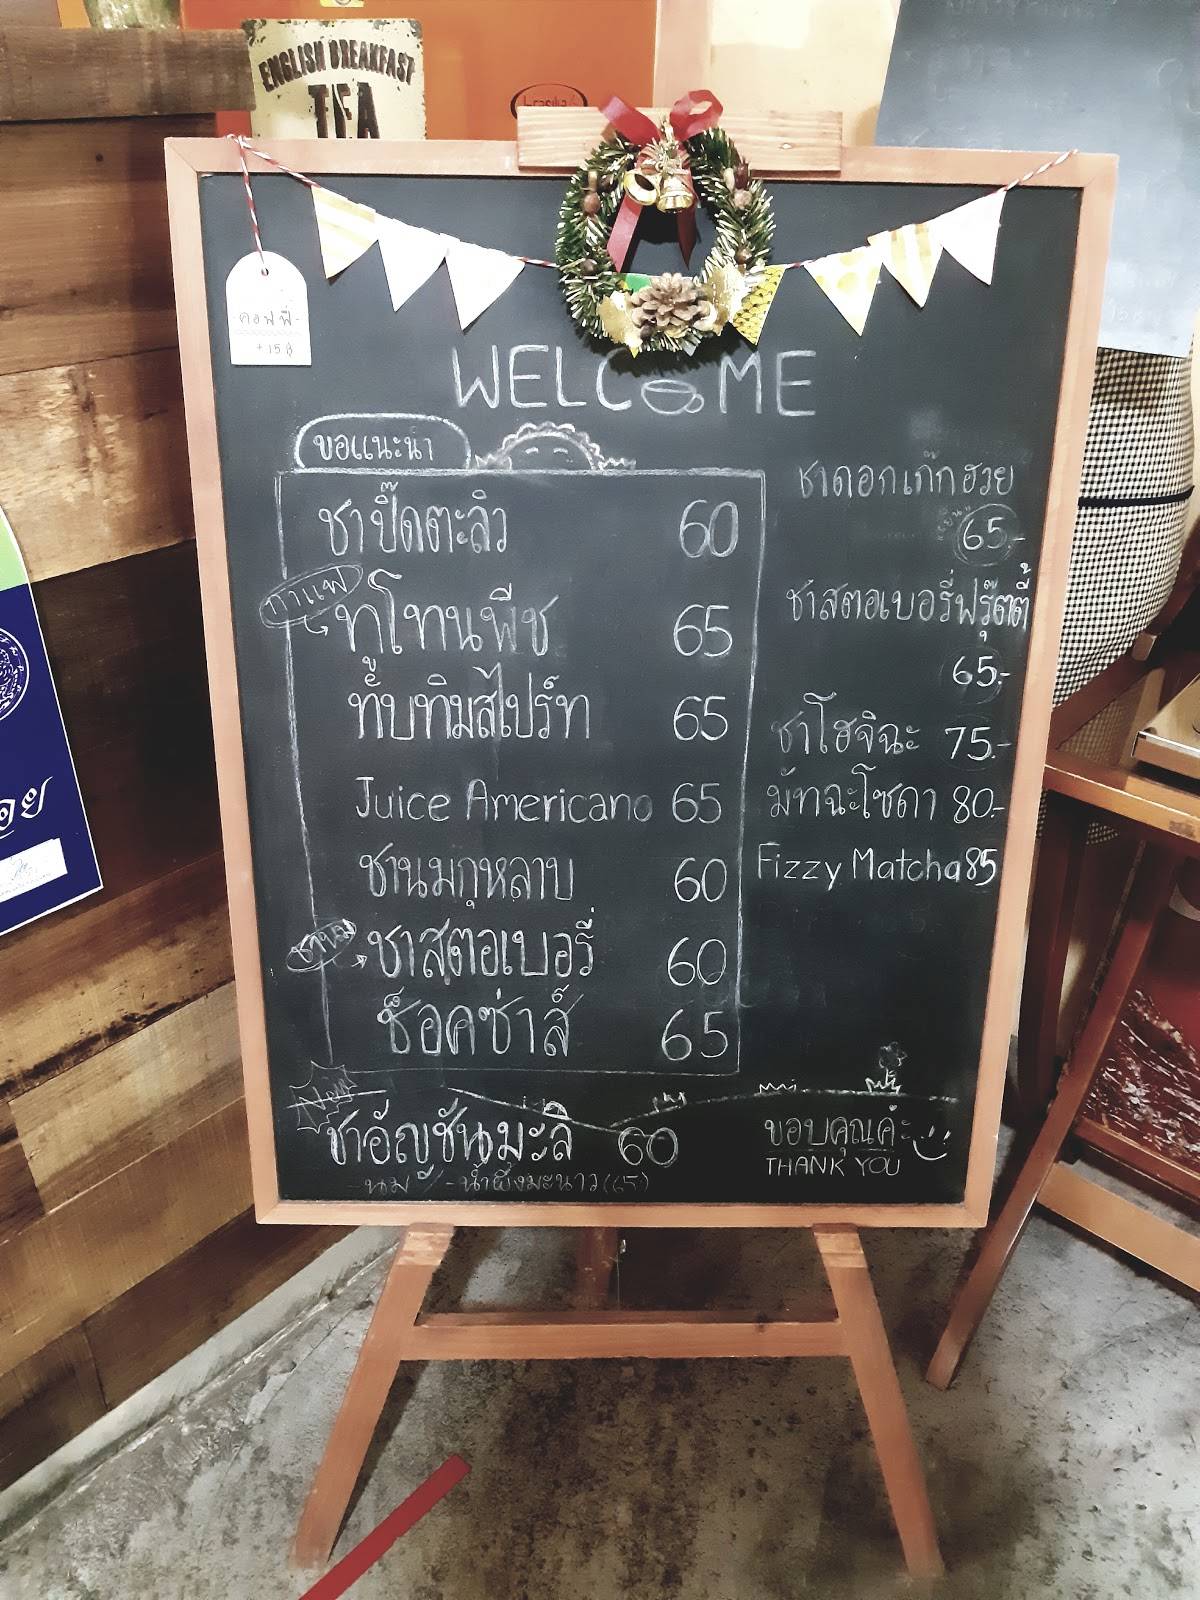 ENGLISH BREAKFAST
TEA
คอฟฟี่
+15฿
WELCOME
ขอแนะนำ
ชาปี๊ดตะลิว 60
กาแฟ
ทูโทนพีช 65
ทับทิมสไปร์ท 65
Juice Americano 65
ชานมกุหลาบ 60
ชานม
ชาสตอเบอรี่ 60
ช็อคซ่าส์ 65
New
ชาอัญชันมะลิ 60
-นม -น้ำผึ้งมะนาว (65)
ชาดอกเก๊กฮวย
65.-
ชาสตอเบอรี่ฟรุ๊ตตี้
65.-
ชาโฮจิฉะ 75.-
มัทฉะโซดา 80.-
Fizzy Matcha 85
ขอบคุณค่ะ
THANK YOU